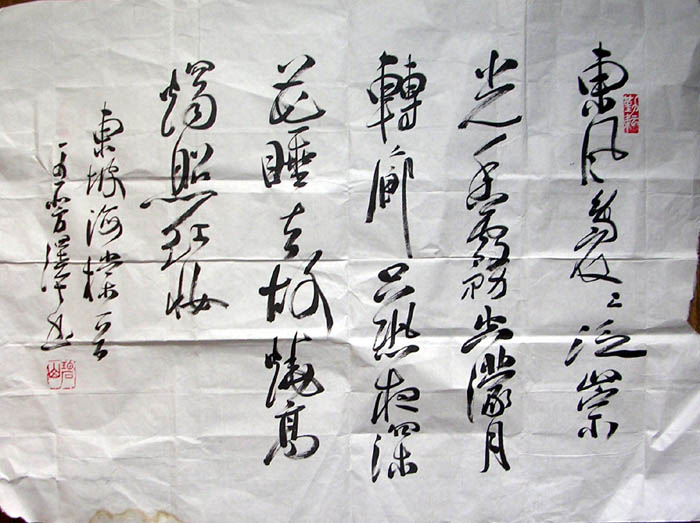 東風嫋々泛崇
光香霧空濛月
轉廊只恐夜深
花睡去故燒高
燭照紅妝
東坡海棠一首
书